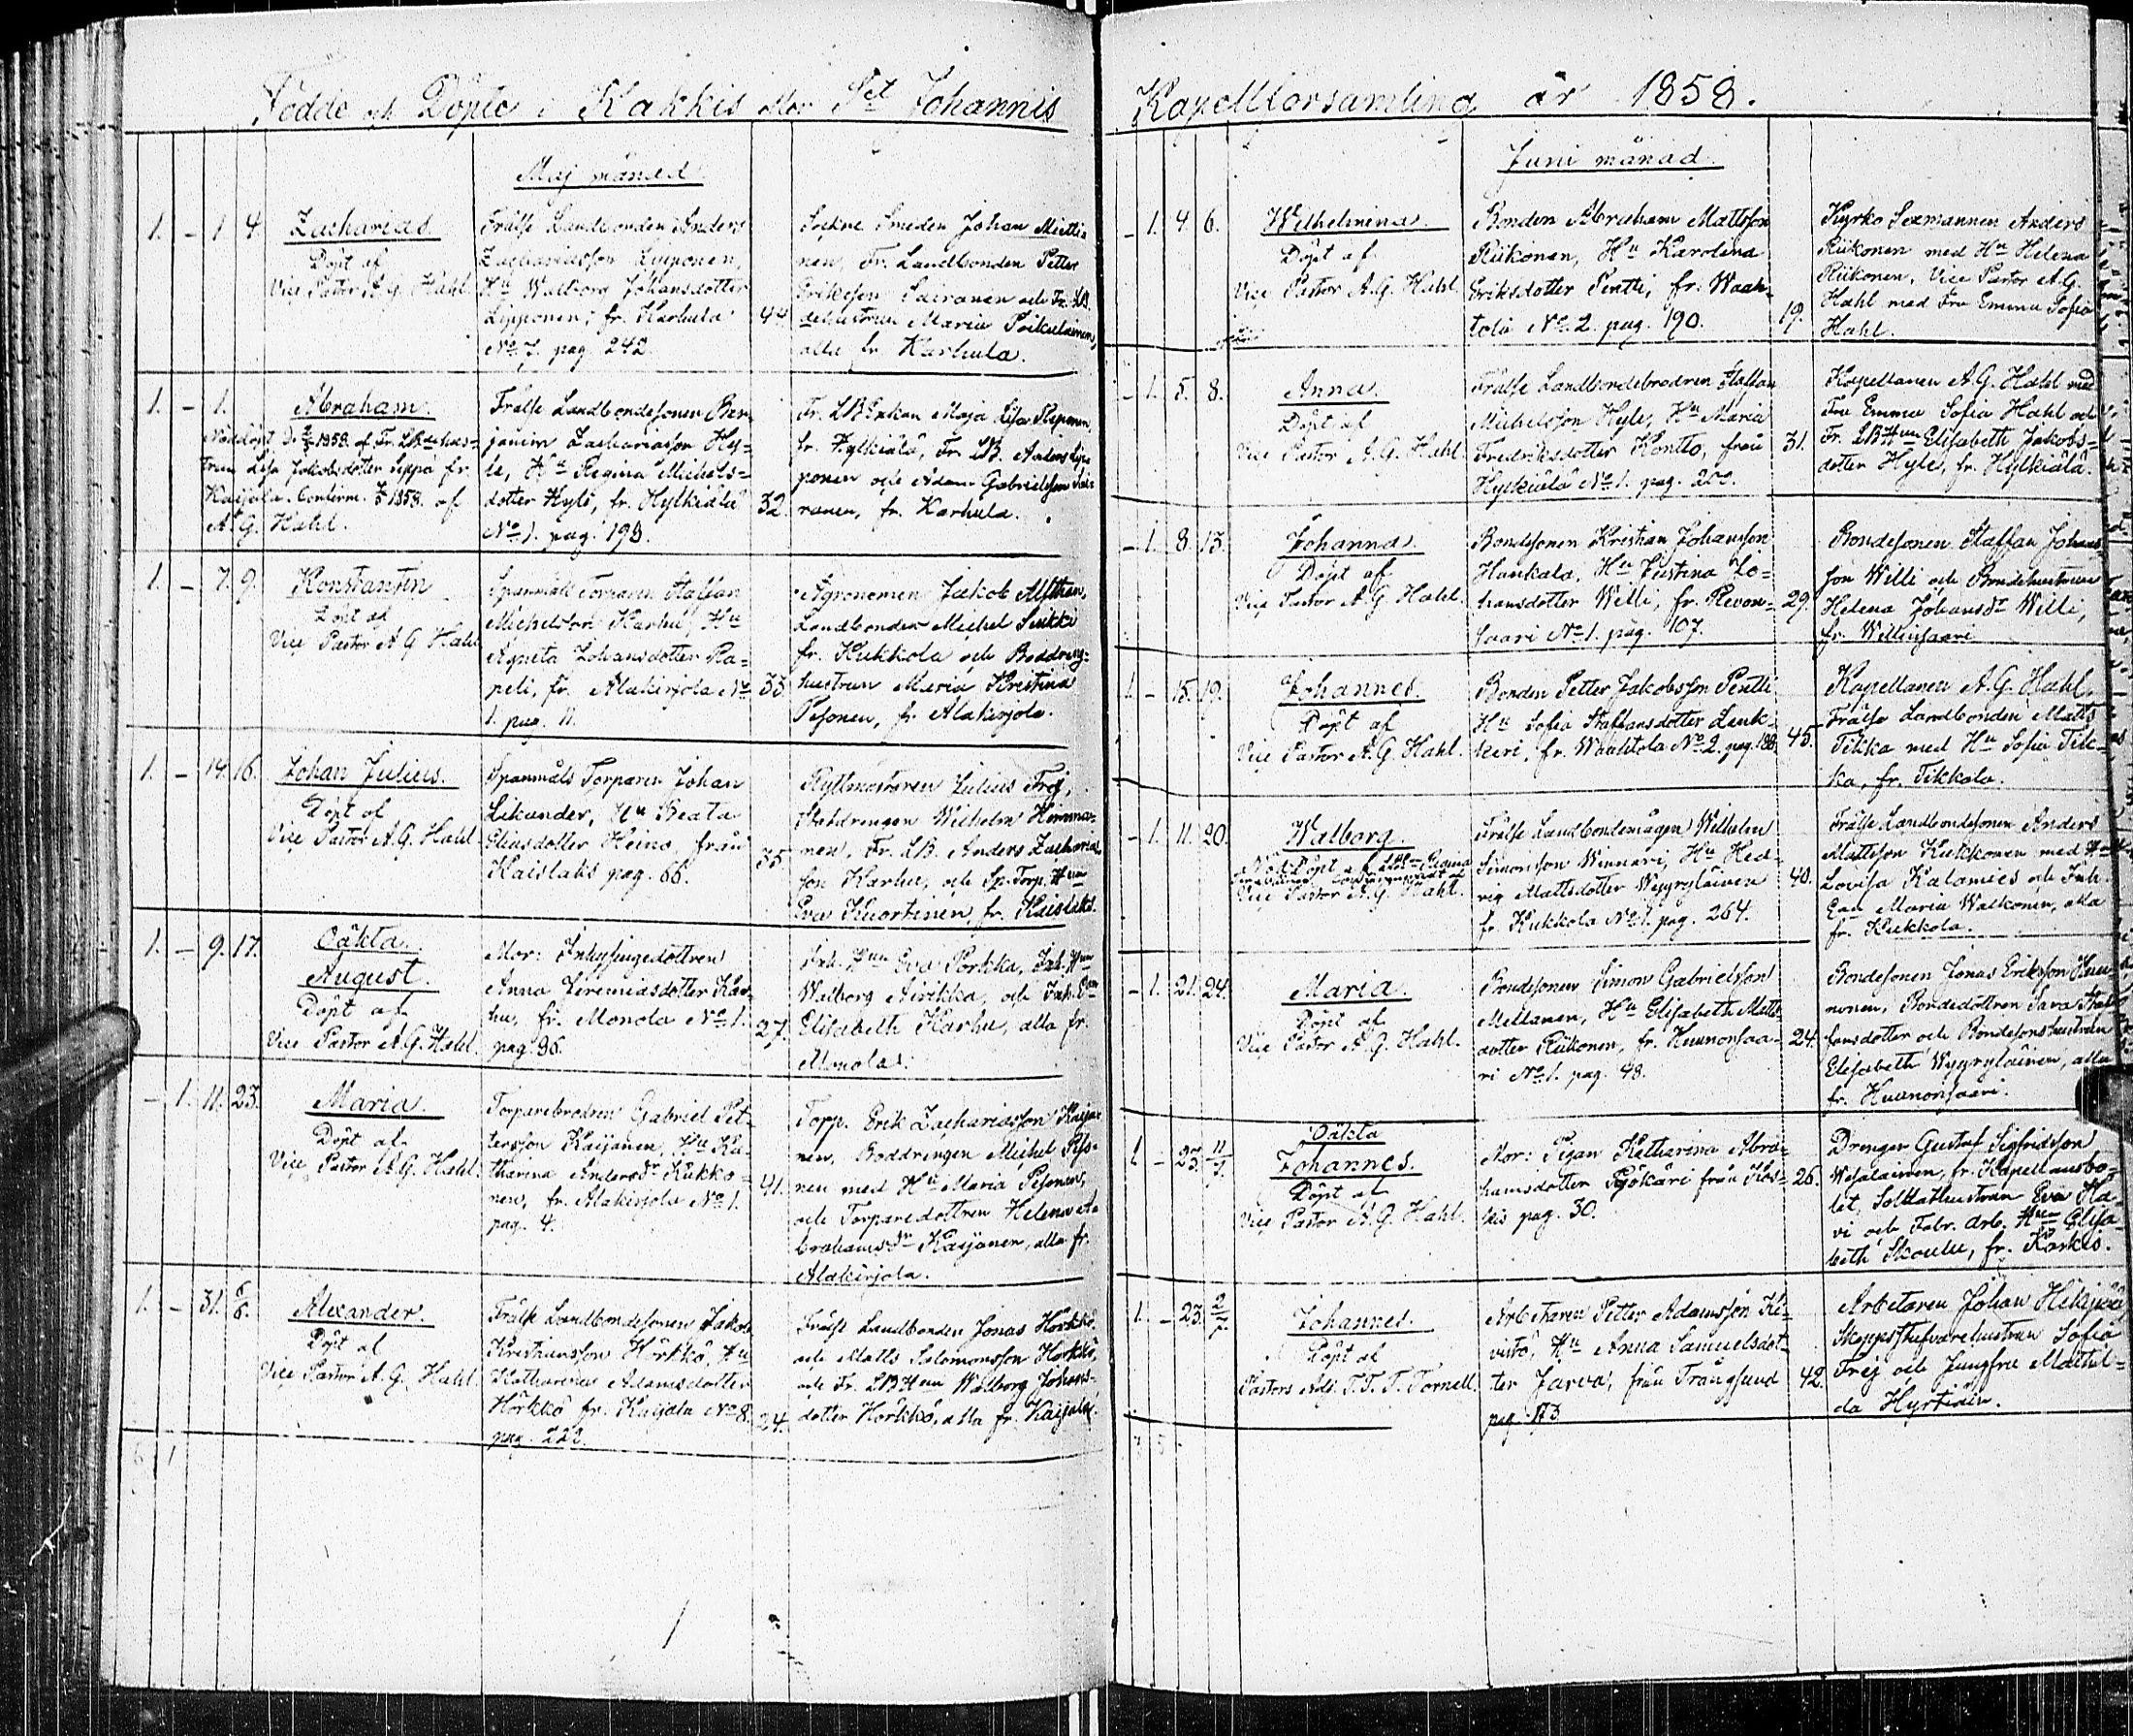 Födde och Döpte i Kakkis eller Sct Johannis
Maj månad
1. – 1. 4. Zacharias.
Döpt af
Vice Pastor A. G. Hahl
Frälse Landbonden Anders
Zachariasson Lipponen,
Hu Walborg Johansdotter
Lipponen, fr. Karhula
No 7. pag. 242.
44.
Sockne Smeden Johan Miettinen,
Fr. Landbonden Petter
Eriksson Sairanen och Fr. LB.
dehustrun Maria Poikulainen,
alla fr. Karhula.
1. – 1. Abraham.
Nöddöpt 1858. af Fr. LBdehus-
trun Lisa Jakobsdotter Seppä fr.
Kaijala. Confirm. 1858. af
A. G. Hahl.
Frälse Landbondesonen Ben-
jamin Zachariasson Hy-
le, Hu Regina Michels-
dotter Hyle, fr. Hylkiälä
No 1. pag. 198.
32.
fr. Hylkiälä, Fr. LB. Anders Lip-
ponen och Adam Gabrielsson Sai-
ranen, fr. Karhula.
1. – 7. 9. Konstantin
Döpt af
Vice Pastor A. G. Hahl
Spanmåls Torparen Staffan
Michelsson Karhu, Hu
Agneta Johansdotter Ra-
peli, fr. Alakirjola No
1. pag. 11.
33.
Agronomen Jakob Alfthan,
Landbonden Michel Sirkki
fr. Kukkola och Boddreng-
hustrun Maria Kristina
Pesonen, fr. Alakirjola.
1. – 14. 16. Johan Julius.
Döpt af
Vice Pastor A. G. Hahl
Spanmåls Torparen Johan
Likander, Hu Beata
Eliasdotter Heino, från
Kaislaks pag. 66.
35.
Ryttmästaren Julius Frej,
Statdrengen Wilhelm Homma-
nen, Fr. LB. Anders Zacharias-
son Karhu, och Sp. Torp. Hun
Eva Kuortinen, fr. Kaislaks.
1. – 9. 17. Oäkta.
August.
Döpt af
Vice Pastor A. G. Hahl.
Mor: Inhysingedottren
Anna Jeremiasdotter Kar-
hu, fr. Monola No 1.
pag. 96.
27.
Inh. Hun Eva Porkka, Inh. Hun
Walborg Aivikka, och Inh. Ean
Elisabeth Karhu, alla fr.
Monola.
– 1. 11. 23. Maria.
Döpt af
Vice Pastor A. G. Hahl
Torparebrodren Gabriel Pet-
tersson Kaijanen, Hu Ka-
tharina Andersdr Kukko-
nen, fr. Alakirjola No 1.
pag. 4.
41.
Torp. Erik Zachariasson Kaija-
nen, Boddrengen Michel Peso-
nen med Hu Maria Pesonen,
och Torparedottren Helena A-
brahamsdr Kaijanen, alla fr.
Alakirjola.
1. – 31. 6/6. Alexander.
Döpt af
Vice Pastor A. G. Hahl
Frälse Landbondesonen Jakob
Kristiansson Hörkkö, Hu
Katharina Adamsdotter
Hörkkö fr. Kaijala No 8.
pag. 222.
24.
Frälse Landbonden Jonas Hörkkö,
och Matts Salomonsson Hörkkö,
och Fr. LBHun Walborg Johans-
dotter Hörkkö, alla fr. Kaijala.
6 1
Kapellförsamling år 1858.
Juni månad.
– 1. 4. 6. Wilhelmina.
Döpt af
Vice Pastor A. G. Hahl.
Bonden Abraham Mattsson
Riikonen, Hu Karolina
Eriksdotter Pentti, fr. Waah-
tola No 2. pag. 190.
19.
Kyrko Sexmannen Anders
Riikonen med Hu Helena
Riikonen, Vice Pastor A. G.
Hahl med Fru Emma Sofia
Hahl.
– 1. 5. 8. Anna.
Döpt af
Vice Pastor A. G. Hahl
Frälse Landbondebrodren Staffan
Michelsson Hyle, Hu Maria
Fredriksdotter Kontto, från
Hylkiälä No 1. pag.
31.
Kapellanen A. G. Hahl med
Fru Emma Sofia Hahl och
Fr. LBHun Elisabeth Jakobs-
dotter Hyle, fr. Hylkiälä.
– 1. 8. 13. Johanna.
Döpt af
Vice Pastor A. G. Hahl.
Bondesonen Kristian Johansson
Haukala, Hu Justina Jo-
hansdotter Willi, fr. Revon-
saari No 1. pag. 107.
29.
Bondesonen Staffan Johans-
son Willi och Bondehustrun
Helena Johansdr Willi,
fr. Willinsaari.
1. – 15. 19. Johannes.
Döpt af
Vice Pastor A. G. Hahl.
Bonden Petter Jakobsson Pentti
Hu Sofia Staffansdotter Lank-
keri, fr. Waahtola No 2. pag. 188.
45.
Kapellanen A. G. Hahl,
Frälse Landbonden Matts
Tikka med Hu Sofia Tik-
ka, fr. Tikkala.
– 1. 11. 20. Walborg.
Nöddöpt af
Vice Pastor A. G. Hahl.
Frälse Landbondemågen Wilhelm
Simonsson Winnari, Hu Hed-
vig Mattsdotter Wyyryläinen
fr. Kukkola No 1. pag. 264.
40.
Frälse Landbondesonen Anders
Mattsson Kukkonen med Hu
Lovisa Kalamies och Inh.
Ean Maria Walkonen, alla
fr. Kukkola.
– 1. 21. 24. Maria.
Döpt af
Vice Pastor A. G. Hahl.
Bondesonen Simon Gabrielsson
Mellanen, Hu Elisabeth Matts-
dotter Riikonen, fr. Huunonsaa-
ri No 1. pag. 48.
24.
Bondesonen Jonas Eriksson Huu-
nonen, Bondedottren Sara Staf-
fansdotter och Bondesonshustrun
Elisabeth Wyyryläinen, alla
fr. Huunonsaari.
1. – 23. 11/7. Oäkta
Johannes.
Döpt af
Vice Pastor A. G. Hahl.
Mor: Pigan Katharina Abra-
hamsdotter Pyökäri från Kos-
kis pag. 30.
26.
Drengen Gustaf Sigfridsson
Wesalainen, fr. Kapellansbo-
let, Soldathustrun Eva Ha-
vi och Fabr. arb. Hun Elisa-
beth Skoulu, fr. Koskis.
1. – 23. 2/7. Johannes.
Döpt af
Pastors Adj. T. T. T. Tornell.
Arbetaren Petter Adamsson Ki-
vistö, Hu Anna Samuelsdot-
ter Jarva, från Trångsund
pag. 173.
42.
Arbetaren Johan Hikipää,
Skeppstufvarehustrun Sofia
Frej och Jungfru Mathil-
da Hyrtiäin.